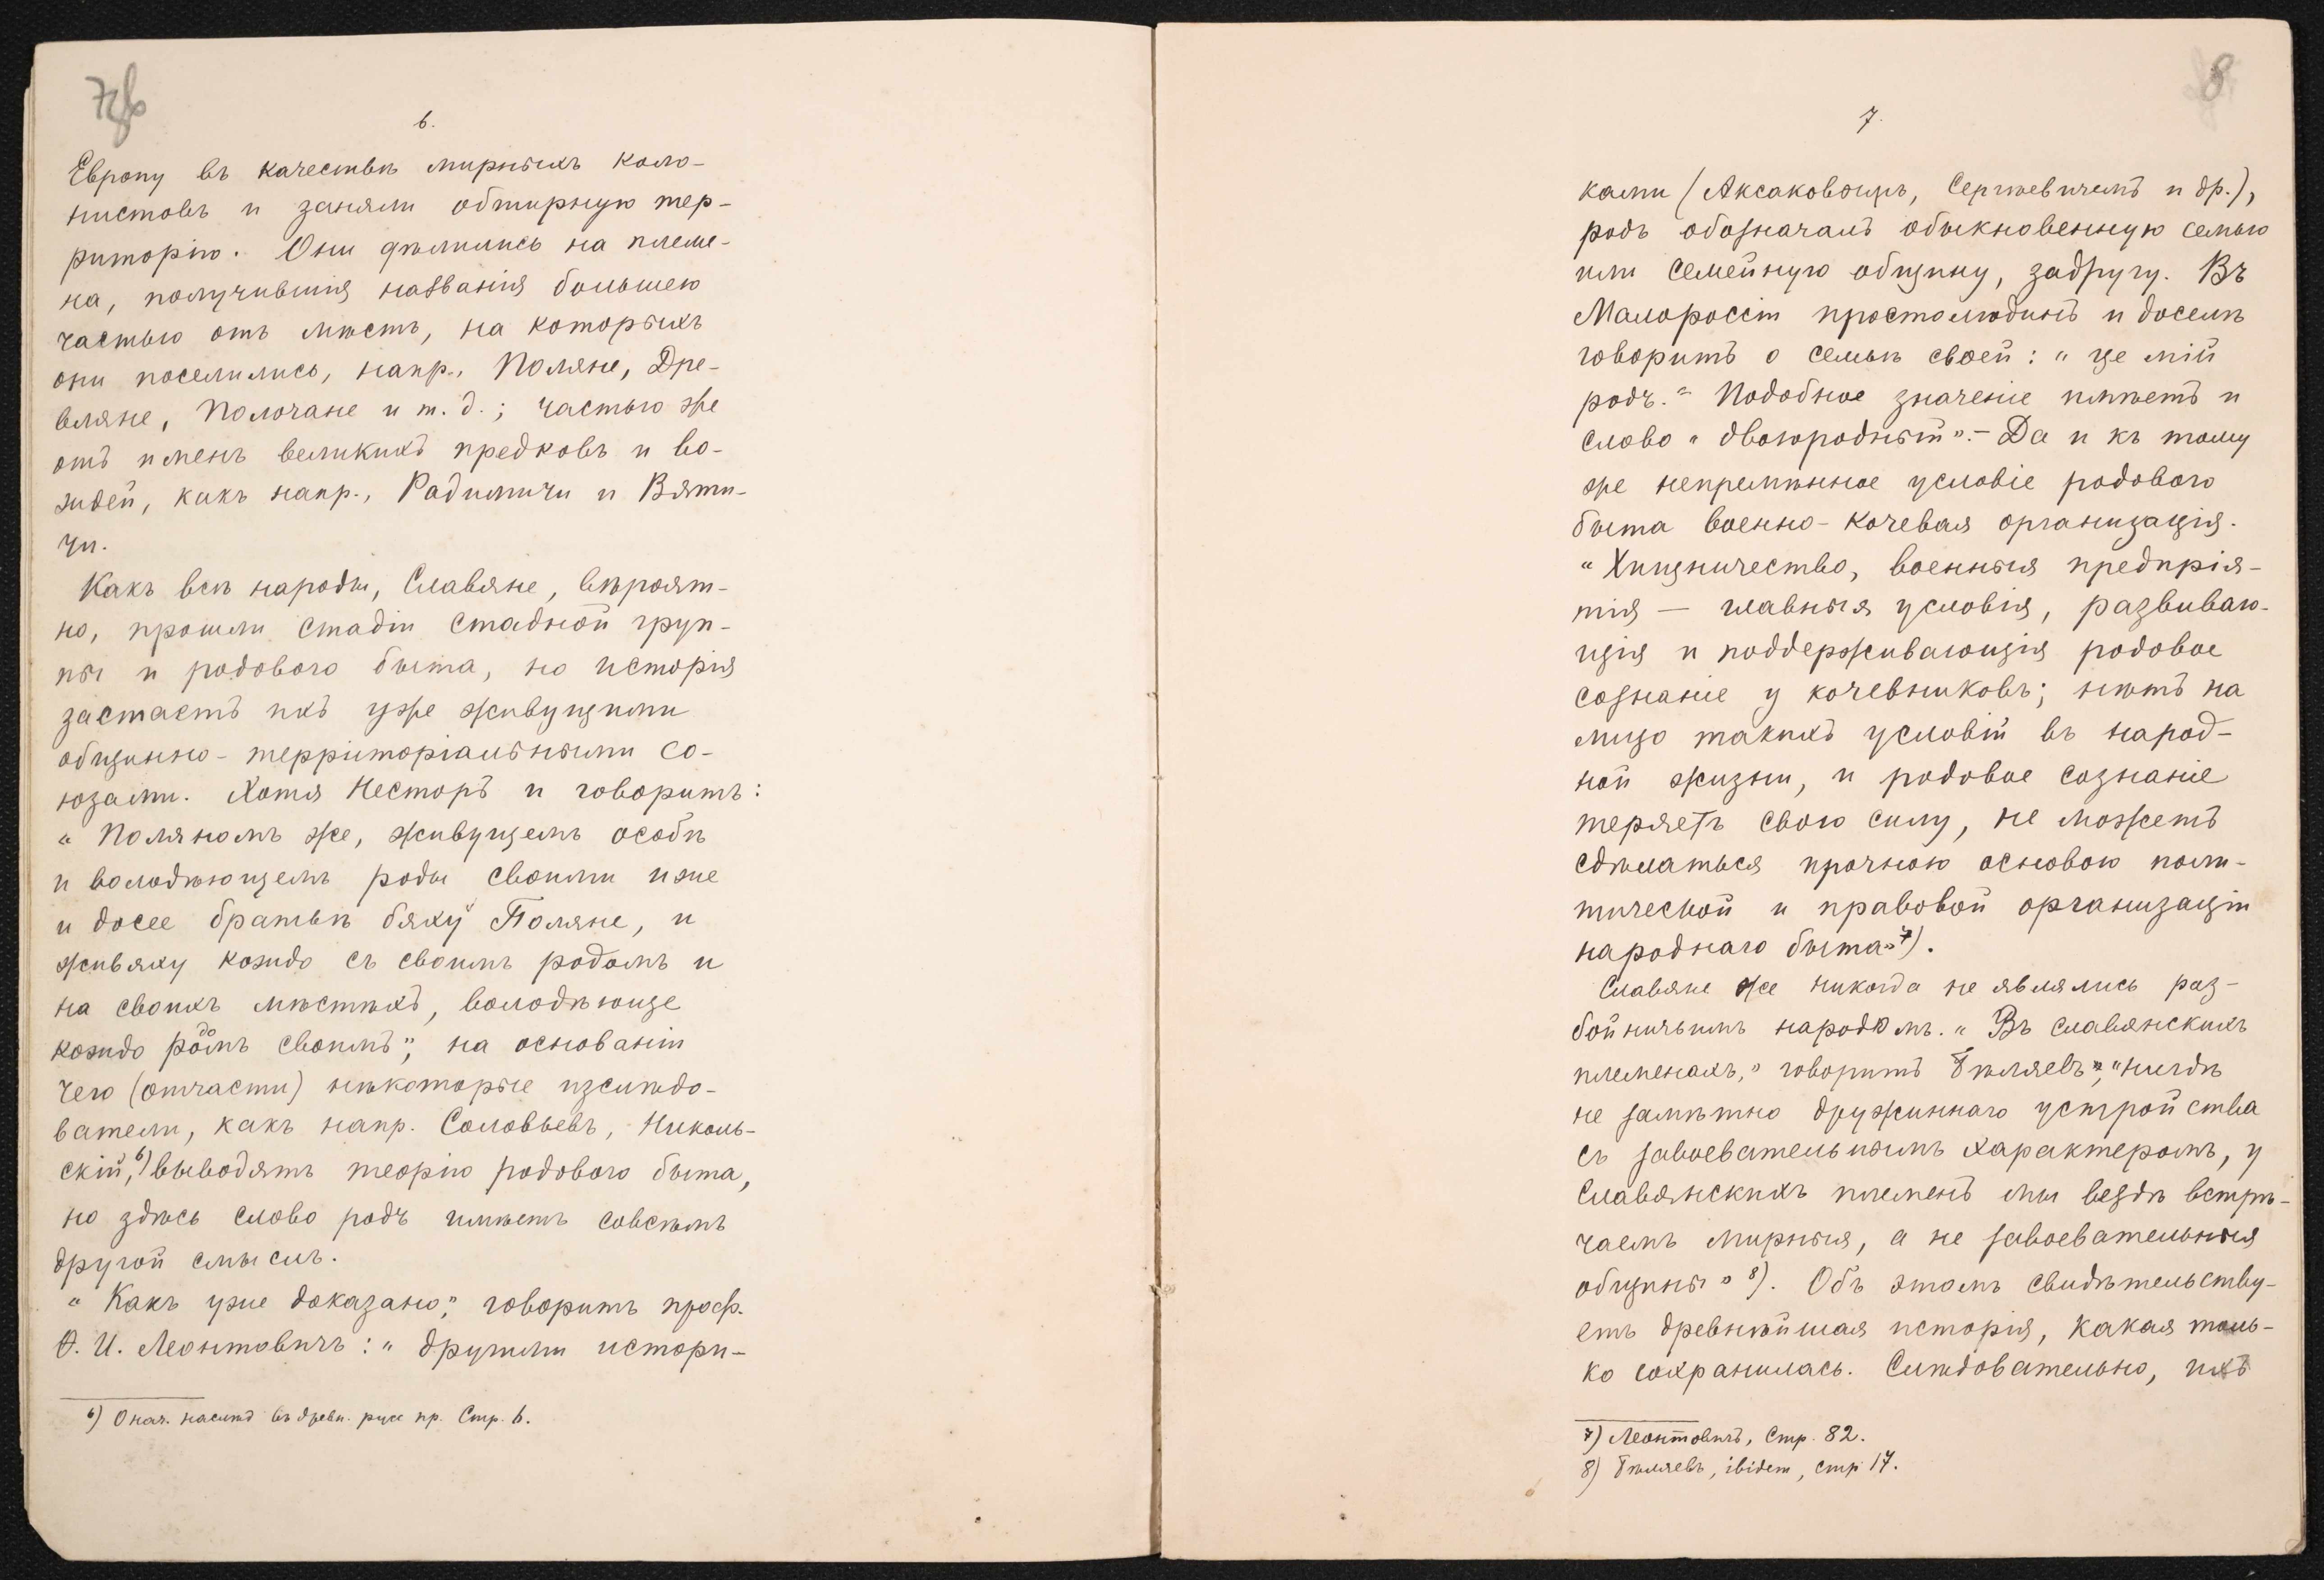 6.
Европу въ качествѣ мирныхъ коло-
нистовъ и заняли обширную тер-
риторію. Они дѣлились на племе-
на, получившія названія большею
частью отъ мѣстъ, на которыхъ
они поселились, напр., Поляне, Дре-
вляне, Полочане и т. д.; частью же
отъ именъ великихъ предковъ и во-
ждей, какъ напр., Радимичи и Вяти-
чи.
Какъ всѣ народы, Славяне, вѣроят-
но, прошли стадіи стадной груп-
пы и родового быта, но исторія
застаетъ ихъ уже живущими
общинно-терріторіальными со-
юзами. Хотя Несторъ и говоритъ:
"Поляномъ же, живущемъ особѣ
и володѣющемъ роды своими иже
и досее братьѣ бяху Поляне, и
живяху кождо съ своимъ родомъ и
на своихъ мѣстѣхъ, володѣюще
кождо родомъ своимъ", на основаніи
чего (отчасти) нѣкоторые изслѣдо-
ватели, какъ напр. Соловьевъ, Николь-
скій,6) выводятъ теорію родового быта,
но здѣсь слово родъ имѣетъ совсѣмъ
другой смыслъ.
"Какъ уже доказано", говоритъ проф.
Ѳ. И. Леонтовичъ: "другими истори-
6) О нач. наслѣд въ древн. русс пр. Стр. 6.
8
7.
ками (Аксаковымъ, Сергѣевичемъ и др.),
родъ обозначалъ обыкновенную семью
или семейную общину, задругу. Въ
Малороссіи простолюдинъ и доселѣ
говоритъ о семьѣ своей: "це мій
родъ." Подобное значеніе имѣетъ и
слово "двоюродный".- Да и къ тому
же непремѣнное условіе родового
быта военно-кочевая организація.
"Хищничество, военныя предпрія-
тія — главныя условія, развиваю-
щія и поддерживающія родовое
сознаніе у кочевниковъ; нѣтъ на
лицо такихъ условій въ народ-
ной жизни, и родовое сознаніе
теряетъ свою силу, не можетъ
сдѣлаться прочною основою поли-
тической и правовой организаціи
народнаго быта"7).
Славяне же никогда не являлись раз-
бойничьимъ народомъ. "Въ славянскихъ
племенахъ," говоритъ Бѣляевъ", "нигдѣ
не замѣтно дружиннаго устройства
съ завоевательнымъ характеромъ, у
Славянскихъ племенъ мы вездѣ встрѣ-
чаемъ мирныя, а не завоевательныя
общины" 8). Объ этомъ свидѣтельству-
етъ древнѣйшая исторія, какая толь-
ко сохранилась. Слѣдовательно, ихъ
7) Леонтовичъ, Стр. 82.
8) Бѣляевъ, ibidem, стр 17.